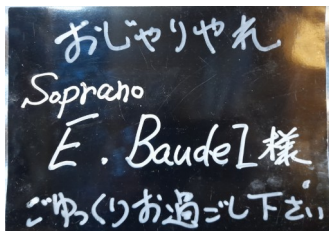 おじゃりやれ
Soprano
E. Baudel様
ごゆっくりお過ごし下さい